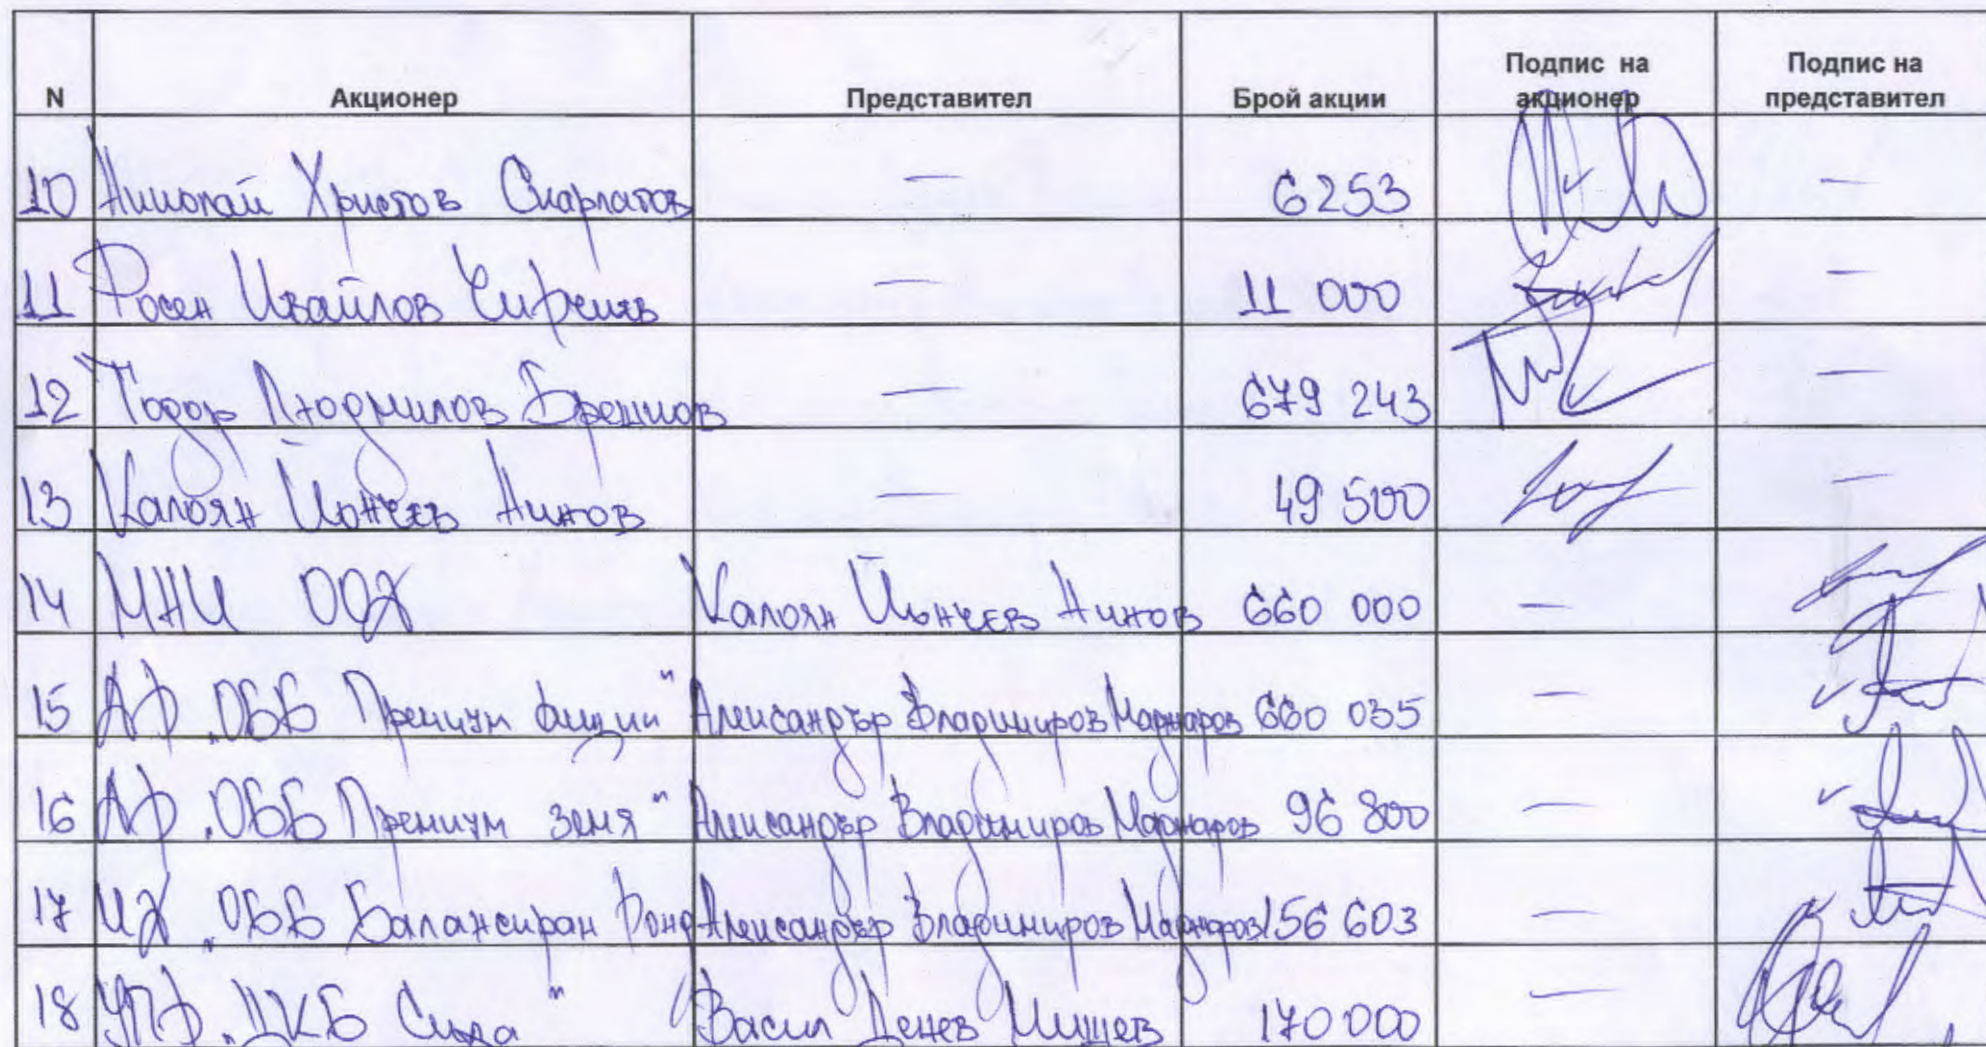 N Акционер Представител Брой акции Подпис на акционер Подпис на представител
10 Николай Христов Скарлатов — 6253 —
11 Росен Ивайлов Чифчиев — 11 000 —
12 Тодор Людмилов Брешков — 679 243 —
13 Калоян Йончев Нинов — 49 500 —
14 МНИ ООД Калоян Йончев Нинов 660 000 —
15 АФ „ОББ Премиум акции" Александър Владимиров Маджаров 660 035 —
16 АФ „ОББ Премиум земя" Александър Владимиров Маджаров 96 800 —
17 ИД „ОББ Балансиран Фонд Александър Владимиров Маджаров 156 603 —
18 УПФ „ЦКБ Сила" Васил Денев Мишев 170 000 —